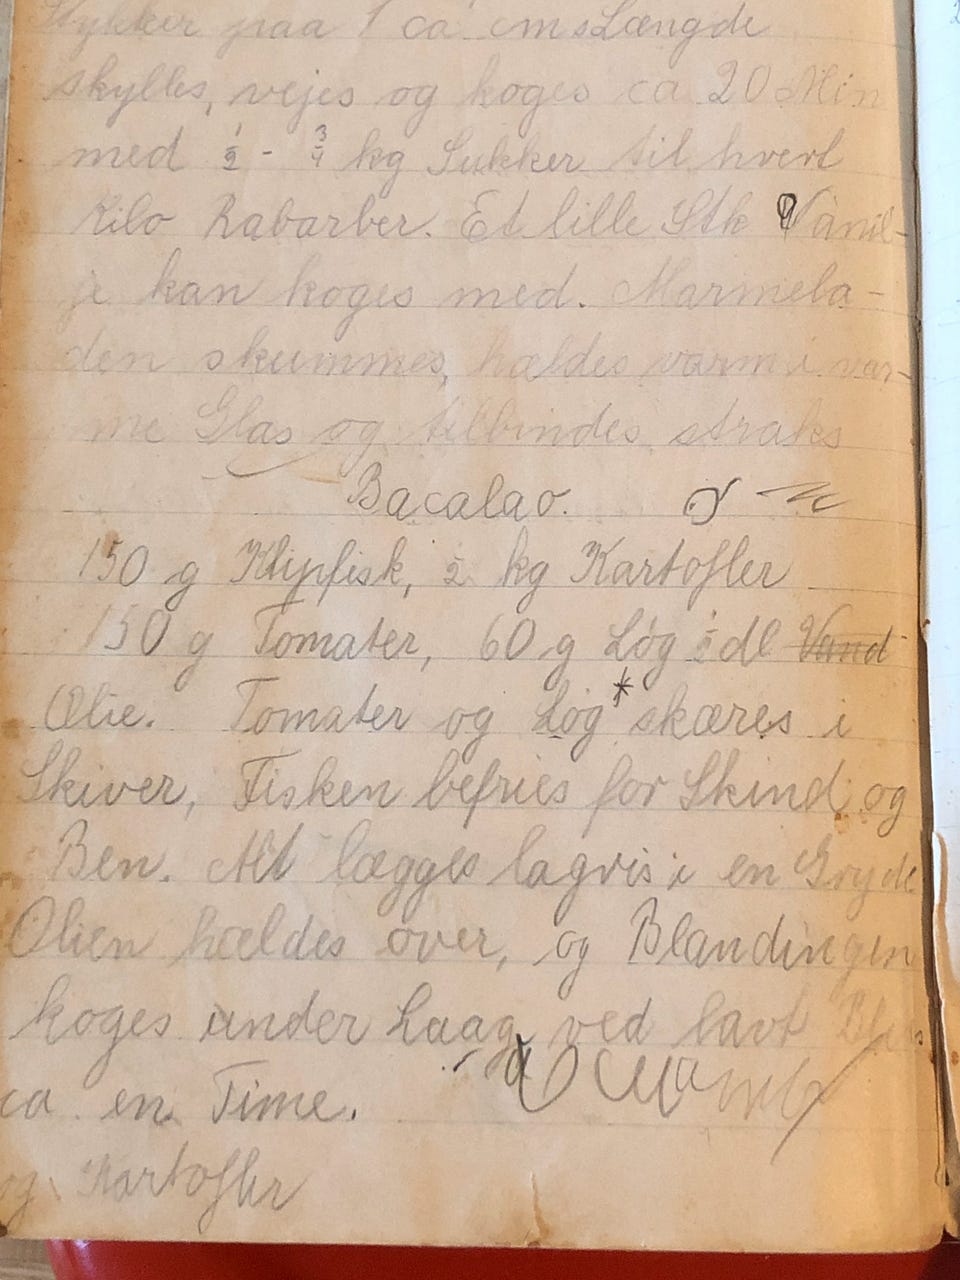 Stykker paa 1 ca cms Længde
skylles, vejes og koges ca 20 Min
med 1/2 - 3/4 kg Sukker til hvert
Kilo Rabarber. Et lille Stk Vanil-
je kan koges med. Marmela-
den skummes, hældes varm i var-
me Glas og tilbindes straks
Bacalao.
150 g Klipfisk, 1/2 kg Kartofler
150 g Tomater, 60 g Løg dl Vand
Olie. Tomater og Løg * skæres i
Skiver, Fisken befries for Skind og
Ben. Alt lægges lagvis i en Gryde
Olien hældes over, og Blandingen
koges under Laag ved lavt Blus
ca en Time.
og Kartofler